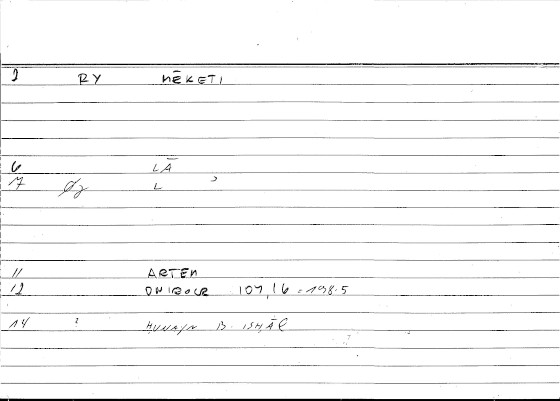 2 RY NĒKETI
6 LĀ
7 L
11 ARTEM
12 ONIROCR 107,16 = 198.5
14 ? HUNAYN B. ISHĀQ